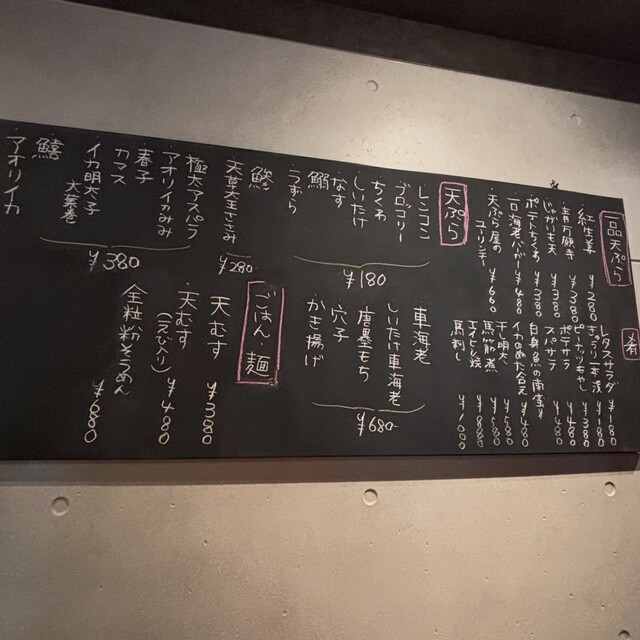 一品天ぷら
紅生姜 ¥280
青万願寺 ¥380
じゃがいも天 ¥380
ポテトちくわ ¥380
一口海老パン ¥480
天ぷら屋の
ユーリンチー ¥660
肴
レタスサラダ ¥180
きゅうり一本漬 ¥180
ピーナッツもやし ¥380
ポテサラ ¥480
スパサラ ¥480
白身魚の南蛮
イカのぬた合え ¥480
干し明太 ¥580
馬筋煮 ¥580
エイヒレ炙 ¥880
馬刺し ¥1000
天ぷら
レンコン
ブロッコリー
ちくわ
しいたけ
なす
鰯
うずら
¥180
鯵
天草大王ささみ
¥280-
極太アスパラ
アオリイカみみ
春子
カマス
イカ明太子
大葉巻
¥380
鱚
アオリイカ
車海老
しいたけ車海老
唐墨もち
穴子
かき揚げ
¥680-
ごはん・麺
天むす ¥380
天むす
(えび入り) ¥480
全粒粉そうめん ¥680